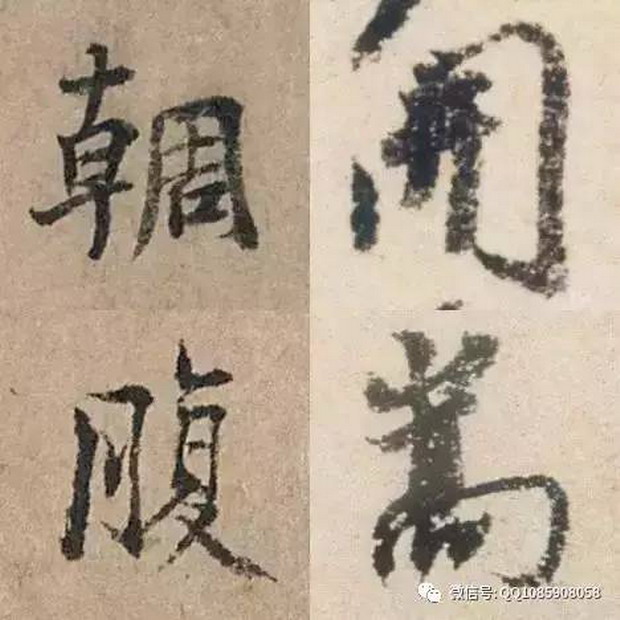 開
腹 嵩
微信号: QQ1085908058